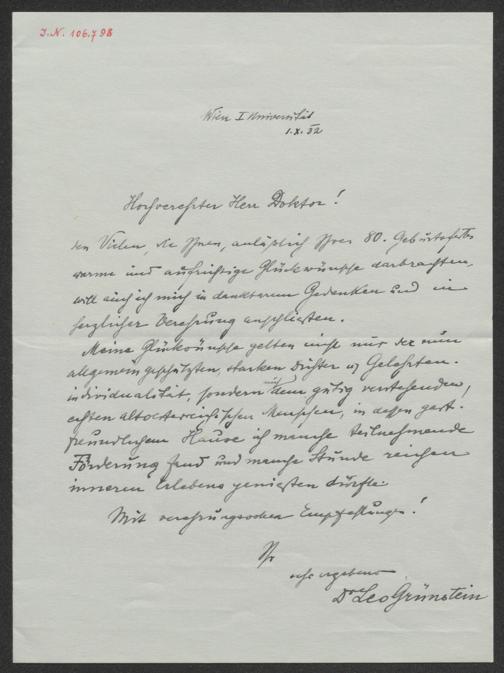 I.N. 106.798
Wien I Universität
1.X.32
Hochverehrter Herr Doktor!
den Vielen, die Ihnen, anläßlich Ihres 80. Geburtsfestes
warme und aufrichtige Glückwünsche darbrachten,
will auch ich mich in dankbarem Gedenken und in
herzlicher Verehrung anschließen.
Meine Glückwünsche gelten nicht nur der nun
allgemein geschätzten, starken Dichter u Gelehrten-
individualität, sondern auch dem gütig verstehenden,
echten altösterreichischen Menschen, in dessen gast-
freundlichem Hause ich manche teilnehmende
Förderung fand und manche Stunde reichen
inneren Erlebens genießen durfte.
Mit verehrungsvollen Empfehlungen!
Ihr
ergebener
Dr Leo Grünstein